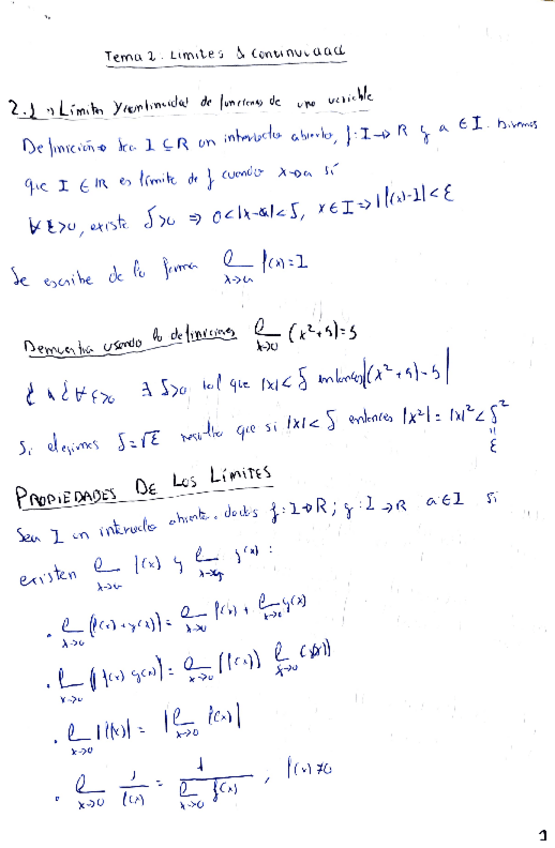 Tema 2: Limites y continuidad
2.1 Límites y continuidad de funciones de una variable
Definición → Sea I ⊆ R un intervalo abierto, f: I → R y a ∈ I. Diremos
que I ∈ R es límite de f cuando x→a si
∀ ε>0, existe δ>0 ⇒ 0<|x-a|<δ, x ∈ I ⇒ |f(x)-I|<ε
Se escribe de la forma l x→a f(x)=I
Demuestra usando la definición l x→0 (x²+5)=5
∀ ε>0 ∃ δ>0 tal que |x|<δ entonces |(x²+5)-5|
Si elegimos δ=√ε resulta que si |x|<δ entonces |x²|=|x|²<δ²
=
ε
PROPIEDADES DE LOS LÍMITES
Sea I un intervalo abierto, dadas f: I→R; g: I→R a∈I si
existen l x→a f(x) y l x→a g(x):
. l x→a (f(x)+g(x)) = l x→a f(x) + l x→a g(x)
. l x→a (f(x) g(x)) = l x→a (f(x)) l x→a
. l x→a |f(x)| = | l x→a f(x)|
. l x→a 1/f(x) = 1/ l x→a f(x) , f(x)≠0
1